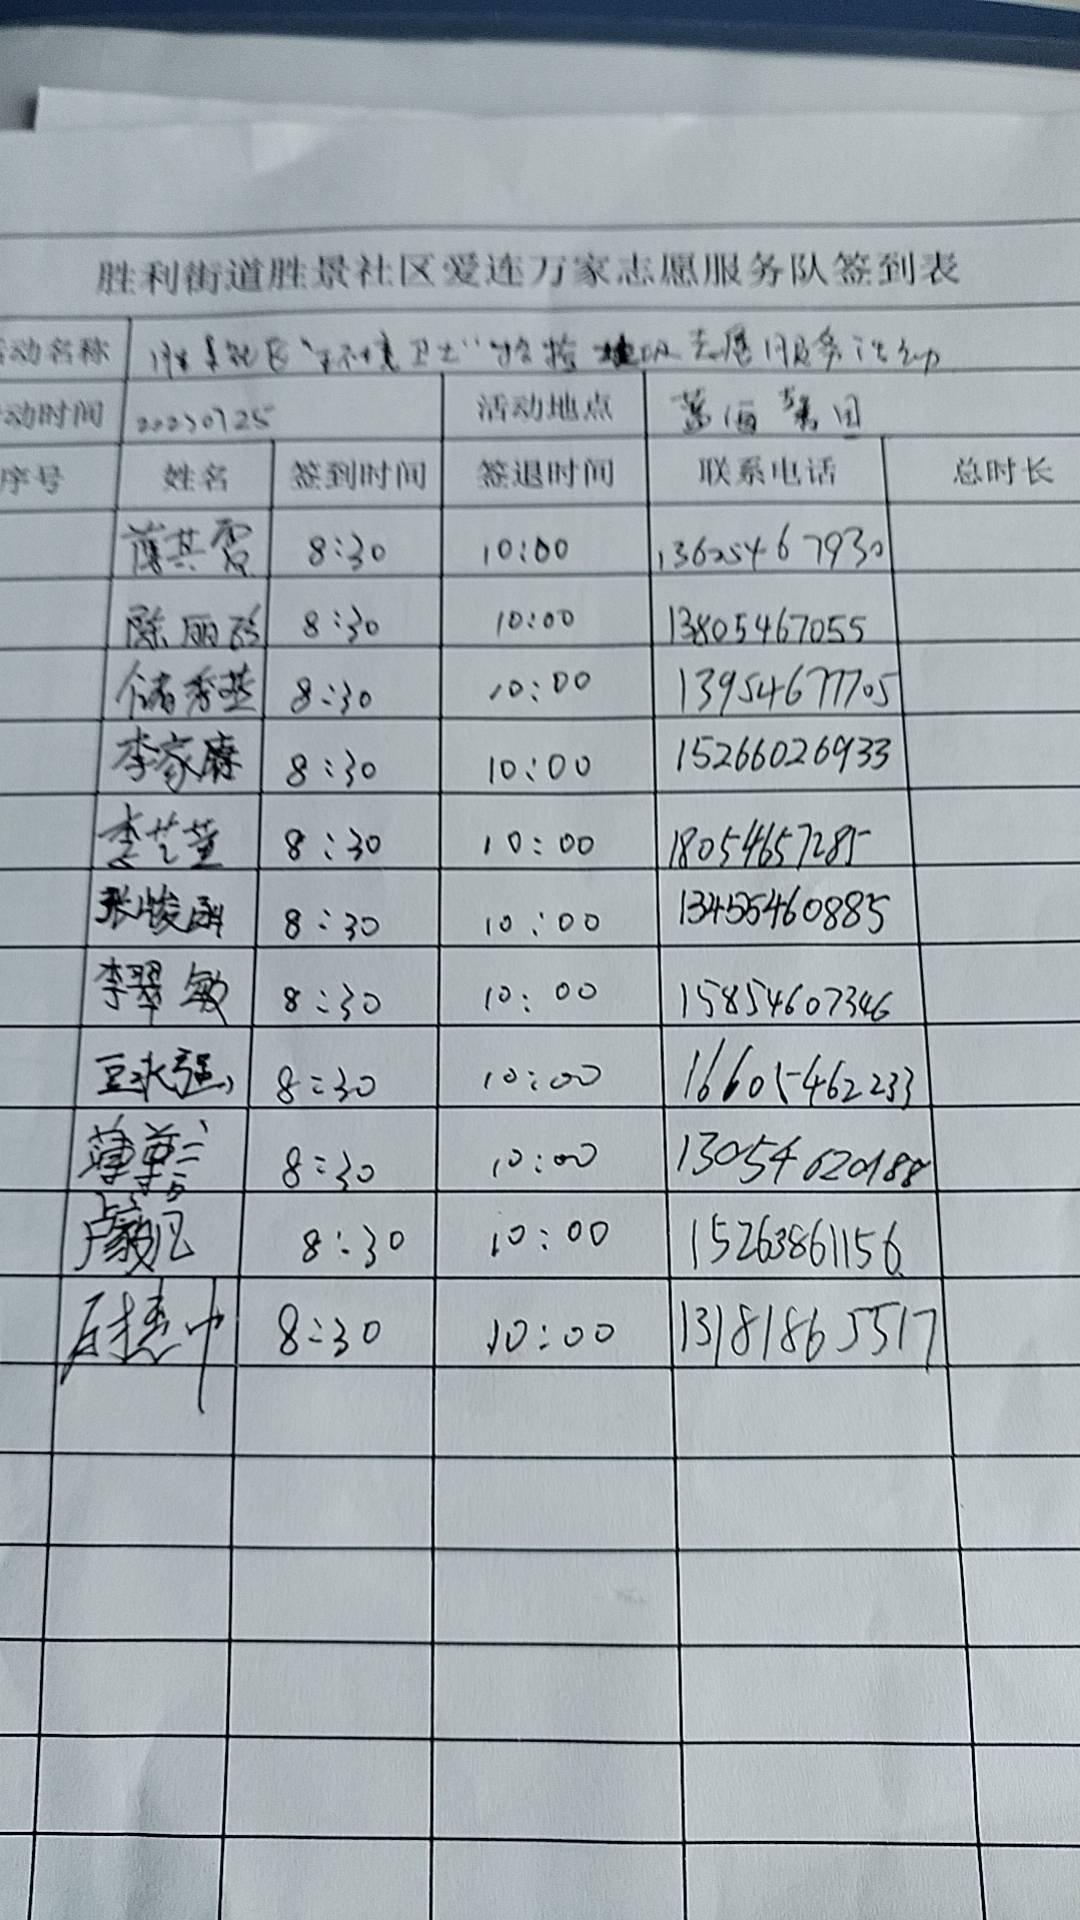 胜利街道胜景社区爱连万家志愿服务队签到表
动名称 胜景社区"环境卫士" 志愿服务活动
动时间 20230725 活动地点 蓝海集团
序号 姓名 签到时间 签退时间 联系电话 总时长
薄其霞 8:30 10:00 13625467930
陈丽 8:30 10:00 13805467055
储秀燕 8:30 10:00 13954677705
李家康 8:30 10:00 15266026933
李芝董 8:30 10:00 18054657285
张峻 8:30 10:00 13455460885
李翠敏 8:30 10:00 15854607346
豆永强 8:30 10:00 16605462233
薄 8:30 10:00 13054620188
卢毅 8:30 10:00 15263861156
8:30 10:00 13181865517